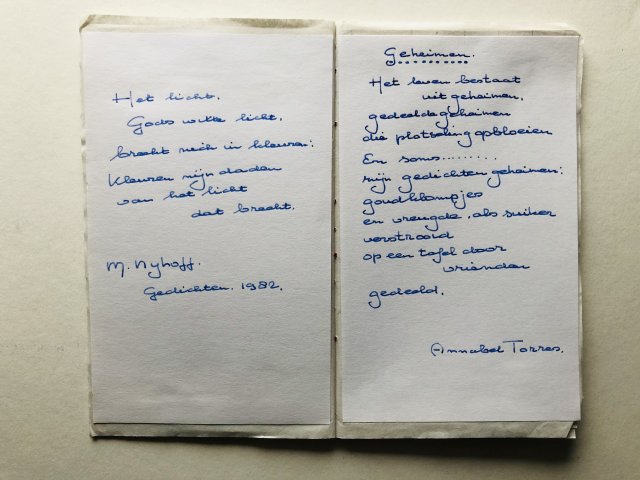 Het licht.
Gods witte licht,
breekt zich in kleuren:
Kleuren zijn daden
van het licht
dat breekt.
M. Nyhoff.
Gedichten. 1982.
Geheimen.
Het leven bestaat
uit geheimen,
gedeelde geheimen
die plotseling opbloeien
En soms.........
zijn gedichten geheimen:
goudklompjes
en vreugde, als suiker
verstrooid
op een tafel door
vrienden
gedeeld.
Annabel Torres.